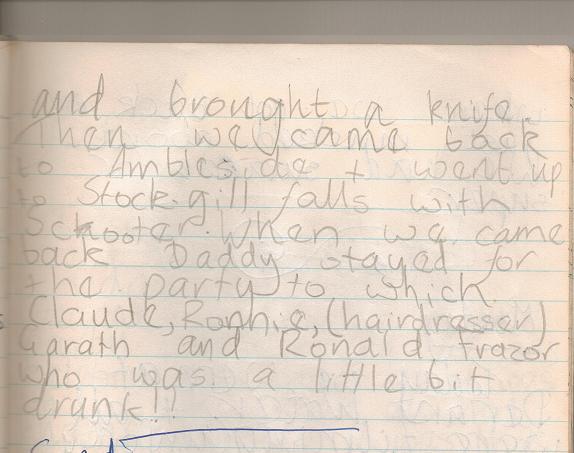 and brought a knife.
Then we came back
to Ambleside + went up
to Stock gill falls with
Schooter. When we came
back Daddy stayed for
the party to which
Claude, Ronnie, (hairdresser)
Garath and Ronald Frazor
who was a little bit
drunk!!